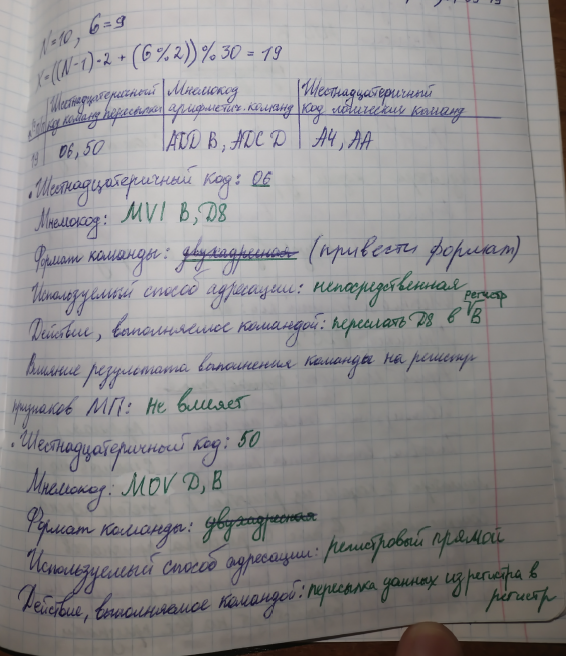 N=10, б=9
X=((N-1)·2+(б%2))%30=19
Шестнадцатеричный Мнемокод Шестнадцатеричный
код команд пересылки арифметич. команд код логических команд
19 06, 50 ADD B, ADC D A4, AA
• Шестнадцатеричный код: 06
Мнемокод: MVI B, D8
Формат команды: двухадресная (привести формат)
Используемый способ адресации: непосредственная
регистр
Действие, выполняемое командой: переслать D8 в B
Влияние результата выполнения команды на регистр
признаков МП: не влияет
• Шестнадцатеричный код: 50
Мнемокод: MOV D, B
Формат команды: двухадресная
Используемый способ адресации: регистровый прямой
Действие, выполняемое командой: пересылка данных из регистра в
регистр